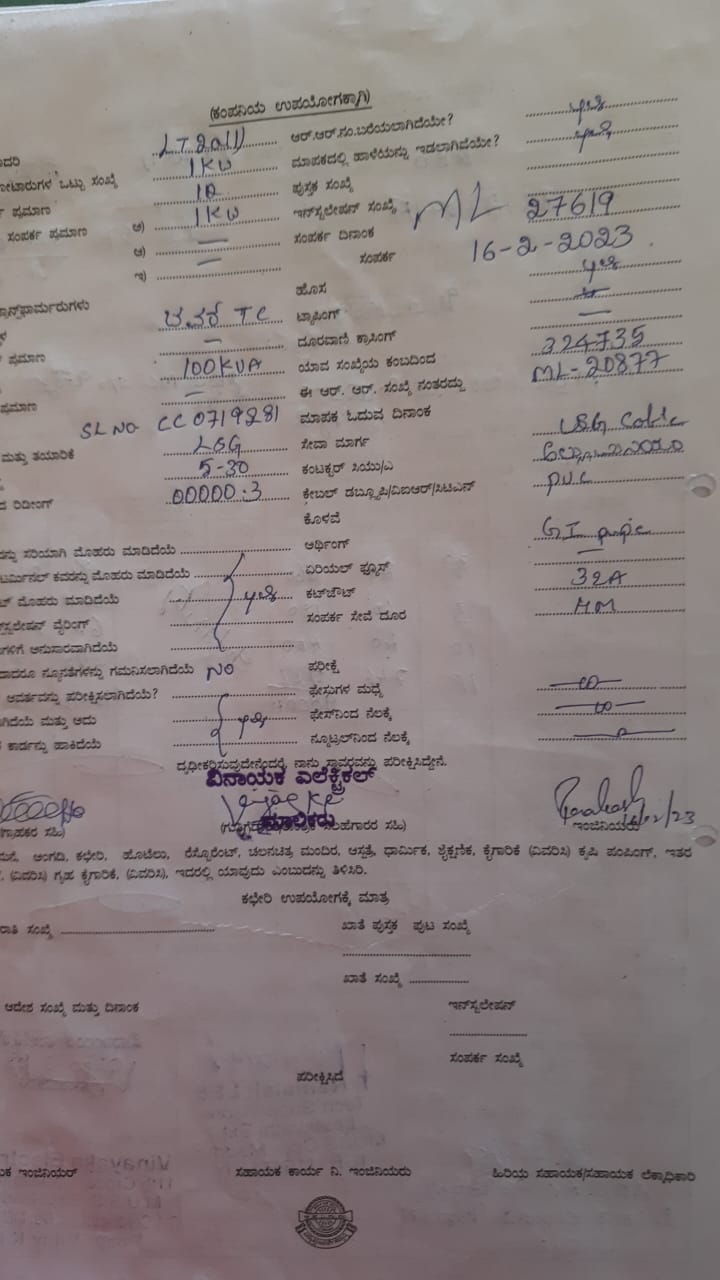 (ಕಂಪನಿಯ ಉಪಯೋಗಕ್ಕಾಗಿ)
ಆರ್.ಆರ್.ನಂ.ಬರೆಯಲಾಗಿದೆಯೇ?
1KW ಮಾಪಕದಲ್ಲಿ ಹಾಳೆಯನ್ನು ಇಡಲಾಗಿದೆಯೇ?
ಒಟ್ಟು ಸಂಖ್ಯೆ ಪುಸ್ತಕ ಸಂಖ್ಯೆ
ಪ್ರಮಾಣ
ಸಂಪರ್ಕ ಪ್ರಮಾಣ ಅ) 1KW ಇನ್‌ಸ್ಟಲೇಷನ್ ಸಂಖ್ಯೆ : ML 27619
ಆ) — ಸಂಪರ್ಕ ದಿನಾಂಕ 16-2-2023
ಇ) — ಸಂಪರ್ಕ
ಹೊಸ
TC ಟ್ಯಾಪಿಂಗ್
— ದೂರವಾಣಿ ಕ್ರಾಸಿಂಗ್ —
ಪ್ರಮಾಣ 100KVA ಯಾವ ಸಂಖ್ಯೆಯ ಕಂಬದಿಂದ 324735
ಪ್ರಮಾಣ — ಈ ಆರ್. ಆರ್. ಸಂಖ್ಯೆ ನಂತರದ್ದು ML-20877
SL NO CC0719281 ಮಾಪಕ ಓದುವ ದಿನಾಂಕ
ಮತ್ತು ತಯಾರಿಕೆ ಸೇವಾ ಮಾರ್ಗ
5-30 ಕಂಟಕ್ಟರ್ ಸಿಯು/ಎ
ರಿಡೀಂಗ್ 00000.3 ಕೇಬಲ್ ಡಬ್ಲ್ಯೂಪಿ/ವಿಐಆರ್/ಸಿಟಿಎಸ್ PVC
ಕೊಳವೆ
ಸರಿಯಾಗಿ ಮೊಹರು ಮಾಡಿದೆಯೆ ಅರ್ಥಿಂಗ್ GI pipe
ಕವರನ್ನು ಮೊಹರು ಮಾಡಿದೆಯೆ ಏರಿಯಲ್ ಫ್ಯೂಸ್ —
ಮೊಹರು ಮಾಡಿದೆಯೆ ಕಟ್‌ಔಟ್ 32A
ವೈರಿಂಗ್ ಸಂಪರ್ಕ ಸೇವೆ ದೂರ
ಅನುಸಾರವಾಗಿದೆಯೆ
ನ್ಯೂನತೆಗಳನ್ನು ಗಮನಿಸಲಾಗಿದೆಯೆ NO ಪರೀಕ್ಷೆ
ಆವರ್ತವನ್ನು ಪರೀಕ್ಷಿಸಲಾಗಿದೆಯೆ? ಫೇಸುಗಳ ಮಧ್ಯೆ
ಮತ್ತು ಅದು ಫೇಸ್‌ನಿಂದ ನೆಲಕ್ಕೆ
ಕಾರ್ಡನ್ನು ಹಾಕಿದೆಯೆ ನ್ಯೂಟ್ರಲ್‌ನಿಂದ ನೆಲಕ್ಕೆ
ದೃಢೀಕರಿಸುವುದೇನೆಂದರೆ, ನಾನು ಸ್ಥಾವರವನ್ನು ಪರೀಕ್ಷಿಸಿದ್ದೇನೆ.
ವಿನಾಯಕ ಎಲೆಕ್ಟ್ರಿಕಲ್
ಮಾಲಿಕರು
(ಗ್ರಾಹಕರ ಸಹಿ) ಸಹಿ) ಇಂಜಿನಿಯರು
ಅಂಗಡಿ, ಕಛೇರಿ, ಹೊಟೇಲು, ರೆಸ್ಟೋರೆಂಟ್, ಚಲನಚಿತ್ರ ಮಂದಿರ, ಆಸ್ಪತ್ರೆ, ಧಾರ್ಮಿಕ, ಶೈಕ್ಷಣಿಕ, ಕೈಗಾರಿಕೆ (ವಿವರಿಸಿ) ಕೃಷಿ ಪಂಪಿಂಗ್, ಇತರ
(ವಿವರಿಸಿ) ಗೃಹ ಕೈಗಾರಿಕೆ, (ವಿವರಿಸಿ), ಇದರಲ್ಲಿ ಯಾವುದು ಎಂಬುದನ್ನು ತಿಳಿಸಿರಿ.
ಕಛೇರಿ ಉಪಯೋಗಕ್ಕೆ ಮಾತ್ರ
ಸಂಖ್ಯೆ ಖಾತೆ ಪುಸ್ತಕ ಪುಟ ಸಂಖ್ಯೆ
ಖಾತೆ ಸಂಖ್ಯೆ
ಆದೇಶ ಸಂಖ್ಯೆ ಮತ್ತು ದಿನಾಂಕ ಇನ್‌ಸ್ಟಲೇಷನ್
ಸಂಪರ್ಕ ಸಂಖ್ಯೆ
ಪರೀಕ್ಷಿಸಿದೆ
ಇಂಜಿನಿಯರ್ ಸಹಾಯಕ ಕಾರ್ಯ ನಿ. ಇಂಜಿನಿಯರು ಹಿರಿಯ ಸಹಾಯಕ/ಸಹಾಯಕ ಲೆಕ್ಕಾಧಿಕಾರಿ